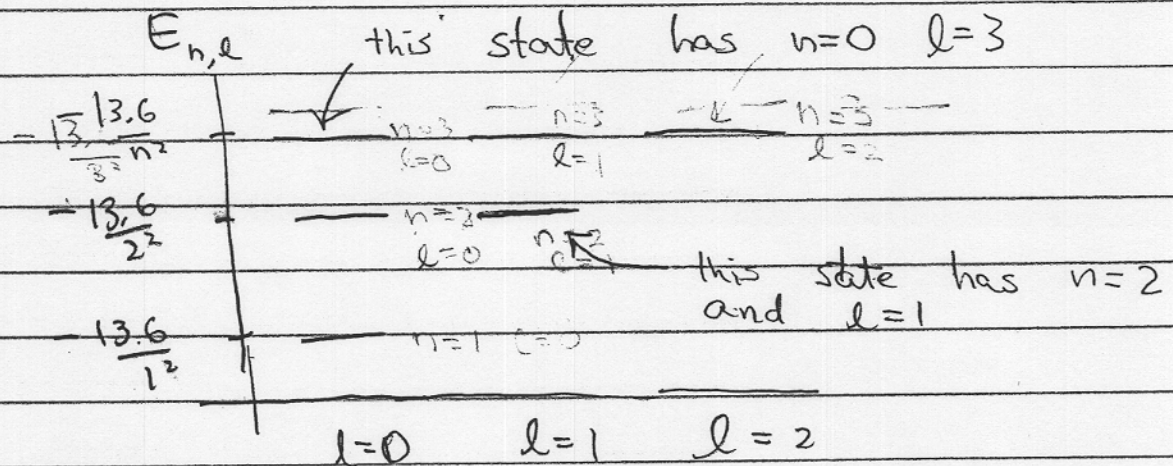 E n,l this state has n=0 l=3
-13.6/n² n=3 n=3 n=3
l=0 l=1 l=2
-13.6/2² n=2 n=2
l=0
this state has n=2
and l=1
-13.6/1² n=1 l=0
l=0 l=1 l=2